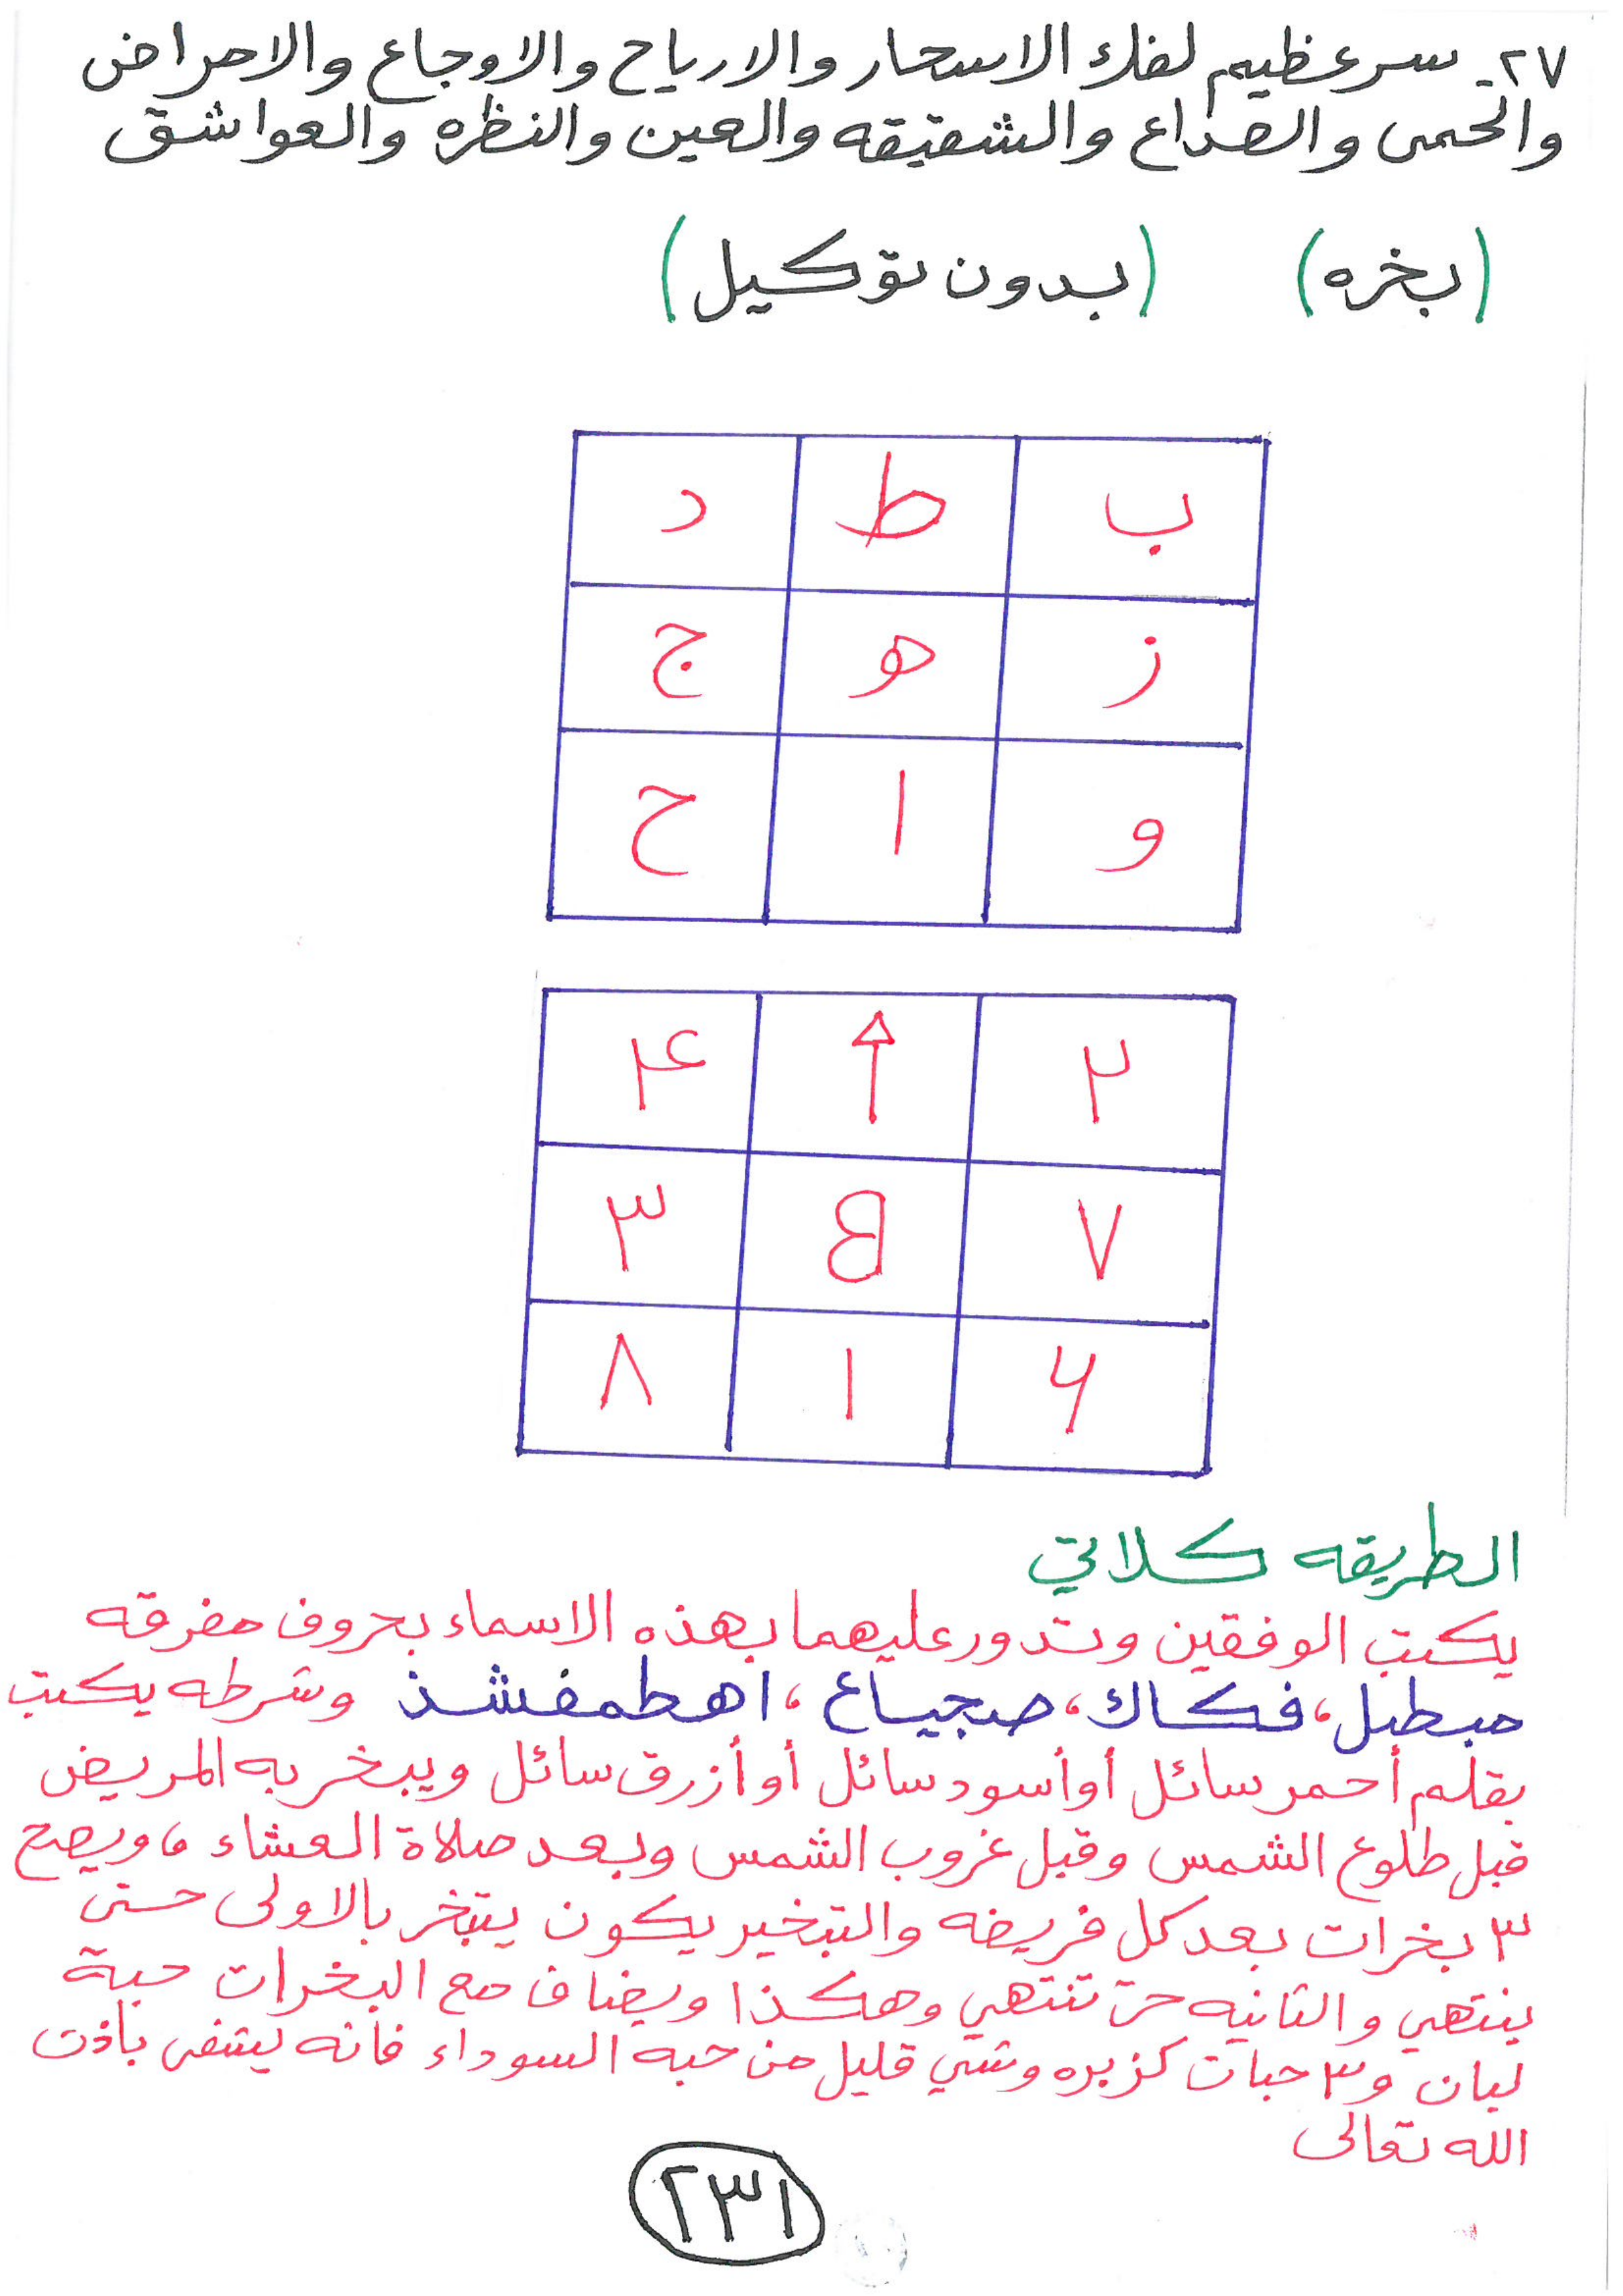 ٢٧- سر عظيم لفك الاسحار والارياح والاوجاع والامراض
والحمى والصداع والشقيقه والعين والنظره والعواشق
(بخره) (بدون توكيل)
ب ط د
ز هو ج
و ا ح
٢ ۴
٧ ٣
۶ ١ ٨
الطريقه كلاتي
يكتب الوفقين وتدور عليهما بهذه الاسماء بحروف مفرقه
مبطبل، فكاك، صجياع، اهطمفشذ وشرطه يكتب
بقلم أحمر سائل أو أسود سائل أو أزرق سائل ويبخر به المريض
قبل طلوع الشمس وقبل غروب الشمس وبعد صلاة العشاء، ويصح
٣ بخرات بعد كل فريضه والتبخير يكون يتبخر بالاولى حتى
ينتهي والثانيه حتى تنتهي وهكذا ويضاف مع البخرات حبة
لبان و٣ حبات كزبره وشي قليل من حبه السوداء فانه يشفى باذن
الله تعالى
٢٣١